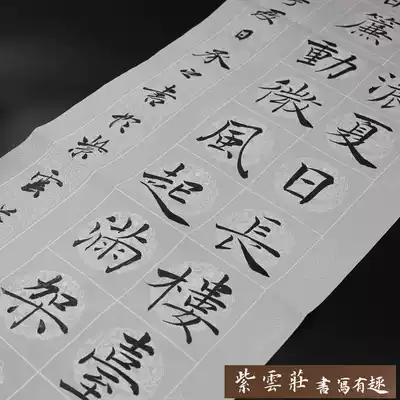 濃夏日長樓臺
簾動微風起滿架
夏日書於紫雲
紫雲莊 書寫有趣